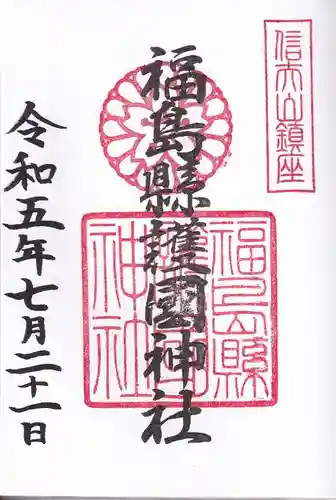 信夫山鎮座
福島縣護國神社
福島縣護國神社
令和五年七月二十一日